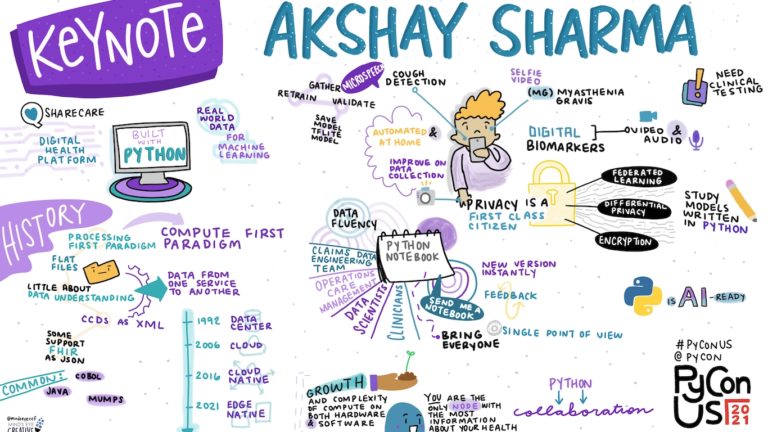 KEYNOTE
AKSHAY SHARMA
SHARECARE
DIGITAL
HEALTH
PLATFORM
BUILT
WITH
PYTHON
REAL
WORLD
DATA
FOR
MACHINE
LEARNING
GATHER
MICROSPEECH
RETRAIN VALIDATE
SAVE
MODEL
TFLITE
MODEL
COUGH
DETECTION
AUTOMATED &
AT HOME
IMPROVE ON
DATA
COLLECTION
SELFIE
VIDEO
(MG) MYASTHENIA
GRAVIS
DIGITAL
BIOMARKERS
VIDEO &
AUDIO
NEED
CLINICAL
TESTING
PRIVACY IS A
FIRST CLASS
CITIZEN
FEDERATED
LEARNING
DIFFERENTIAL
PRIVACY
ENCRYPTION
STUDY
MODELS
WRITTEN
IN PYTHON
HISTORY
PROCESSING
FIRST PARADIGM
COMPUTE FIRST
PARADIGM
FLAT
FILES
LITTLE ABOUT
DATA UNDERSTANDING
DATA FROM
ONE SERVICE
TO ANOTHER
CCDS AS XML
SOME
SUPPORT
FHIR
AS JSON
COMMON:
COBOL
JAVA
MUMPS
1992 DATA
CENTER
2006 CLOUD
2016 CLOUD
NATIVE
2021 EDGE
NATIVE
DATA
FLUENCY
PYTHON
NOTEBOOK
CLAIMS DATA
ENGINEERING
TEAM
OPERATIONS
CARE
MANAGEMENT
DATA SCIENTISTS
CLINICIANS
SEND ME A
NOTEBOOK
NEW VERSION
INSTANTLY
FEEDBACK
BRING
EVERYONE
SINGLE POINT OF VIEW
IS AI-READY
GROWTH
AND COMPLEXITY
OF COMPUTE ON
BOTH HARDWARE
& SOFTWARE
YOU ARE THE
ONLY NODE WITH
THE MOST
INFORMATION
ABOUT YOUR HEALTH
PYTHON
collaboration
#PYCONUS
@PYCON
PyCon
US
2021
MIND'S EYE
CREATIVE